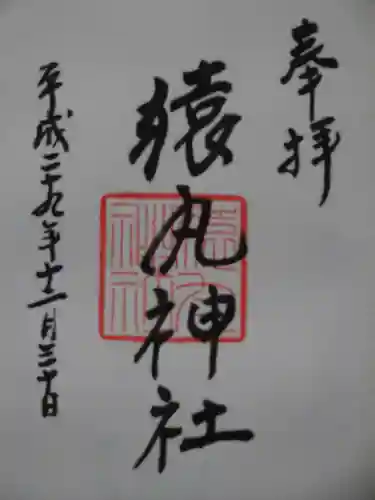 奉拝
猿丸神社
平成二十九年十一月三十日